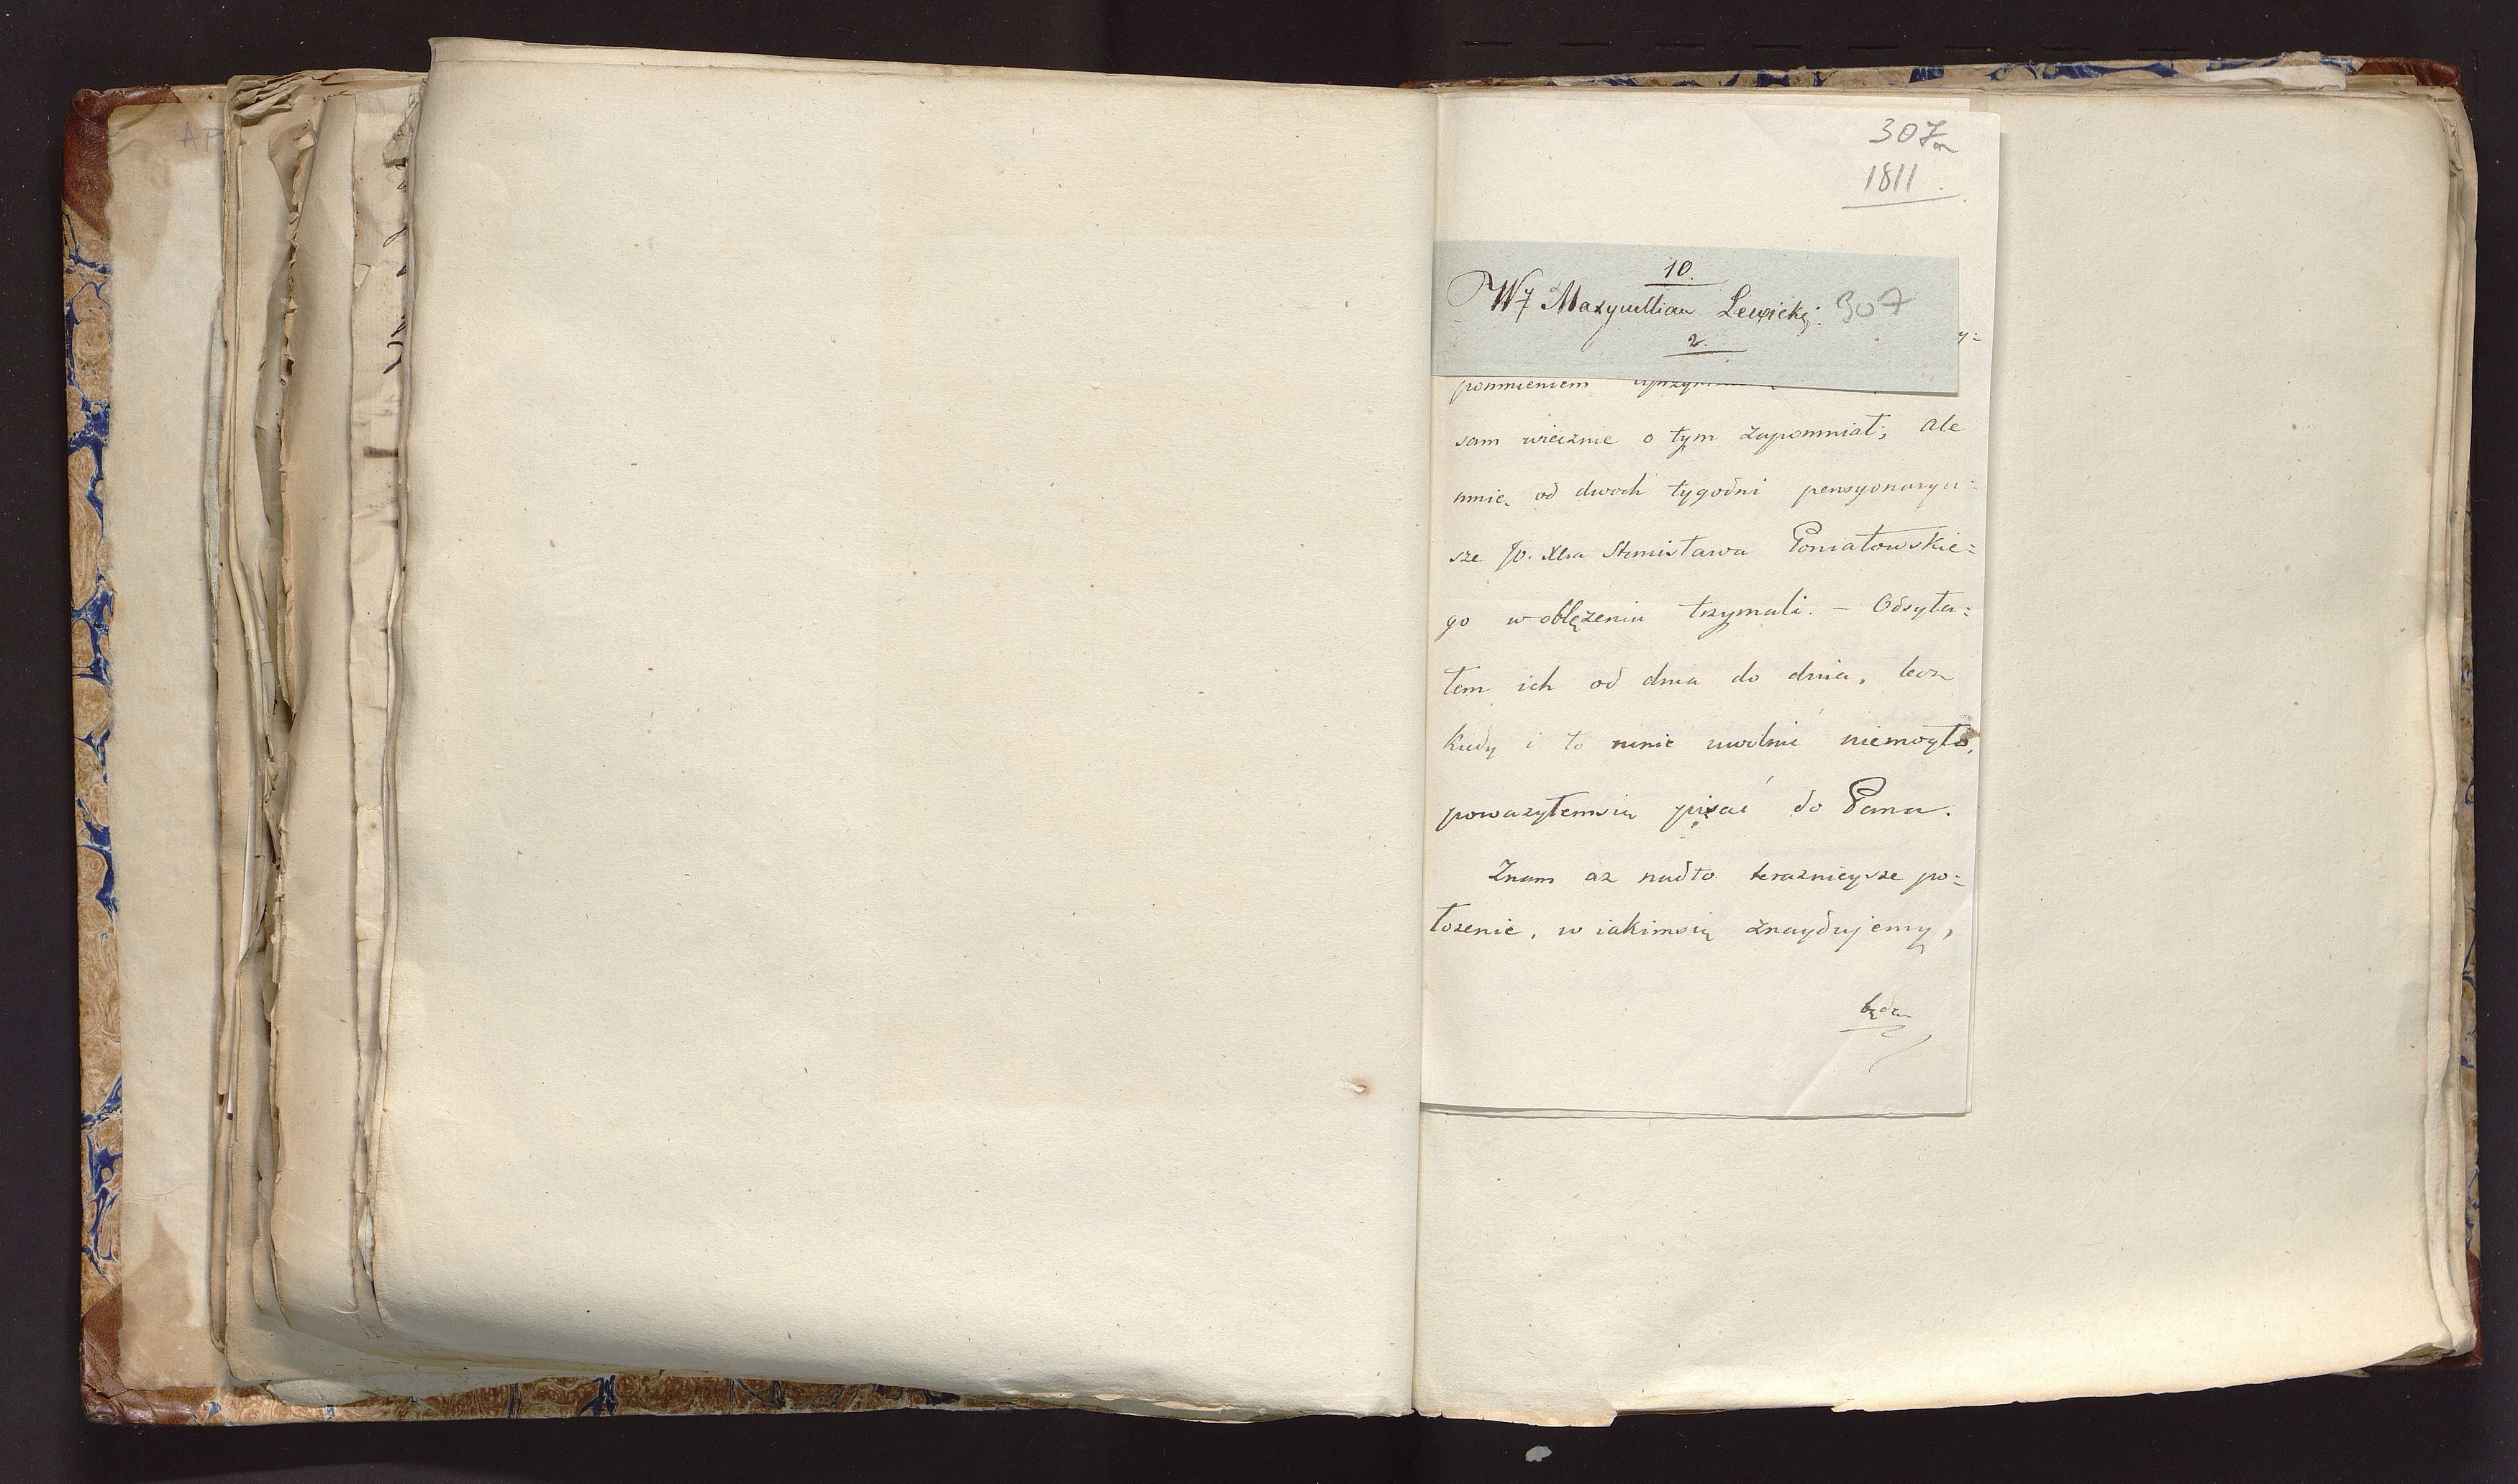 307a
1811.
10.
WJ Maxymillian Lewicki. 307
2.
y=
pomnieniem
sam wiecznie o tym zapomniał; ale
mnie od dwoch tygodni pensyonaryu=
sze Jo. Xcia Stanisława Poniatowskie=
go w oblężeniu trzymali. – Odsyła=
łem ich od dnia do dnia, lecz
kiedy i to mnie uwolnić niemogło,
poważyłemsię pisać do Pana.
Znam aż nadto teraznieysze po=
łozenie, w iakimsię znayduiemy,
będą